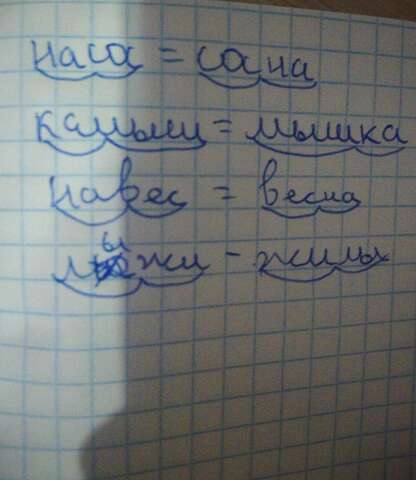 наса = сана
камыш = мышка
навес = весна
лыжи - жилы